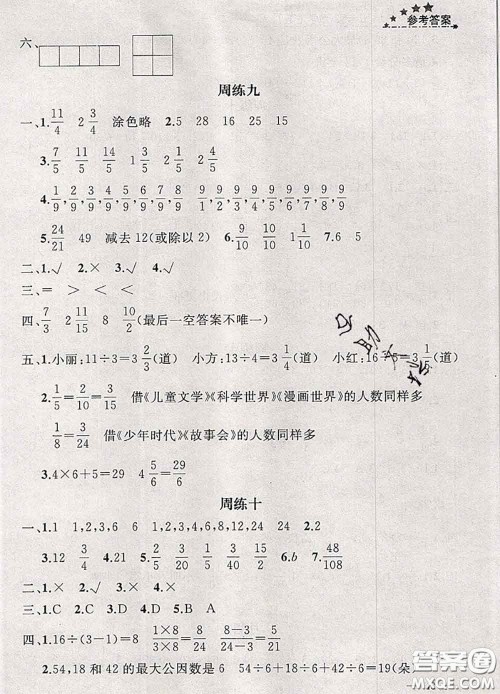 参考答案
六、
周练九
一、1. 11/4 2 3/4 涂色略 2. 5 28 16 25 15
3. 7/5 11/5 14/5 1 2/5 2 1/5 2 4/5
4. 1/9, 2/9, 3/9, 4/9, 5/9, 6/9, 7/9, 8/9 9/9, 9/1, 9/2, 9/3, 9/4, 9/5, 9/6, 9/7, 9/8, 9/9
5. 24/21 49 减去12(或除以2) 6. 9/10 10/10 1 1/10 7. 6 5
二、1.√ 2.× 3.√ 4.√
三、= > < <
四、2/3 2 11/15 8 /10(最后一空答案不唯一)
五、1.小丽:11÷3=3 2/3(道) 小方:13÷4=3 1/4(道) 小红:16÷5=3 1/5(道)
2. 1/2=5/10=7/14 借《儿童文学》《科学世界》《漫画世界》的人数同样多
1/8=3/24 借《少年时代》《故事会》的人数同样多
3. 4×6+5=29 4 5/6=29/6
周练十
一、1. 1 1,2,3,6 6 1,2,3,4,6,8,12,24 24 2. 1
3. 12 3/4 4. 21 5. 2/5 1/2 3/5 3/40 15/4 2/15 6. b 7. 48/108
二、1.× 2.× 3.√ 4.√
三、1.C 2.D 3.A 4.B 5.C
四、1. 16÷(3-1)=8 1×8/3×8=8/24
2. 54,18和42的最大公因数是6 54÷6+18÷6+42÷6=19(朵
答案圈
MXQE.COM